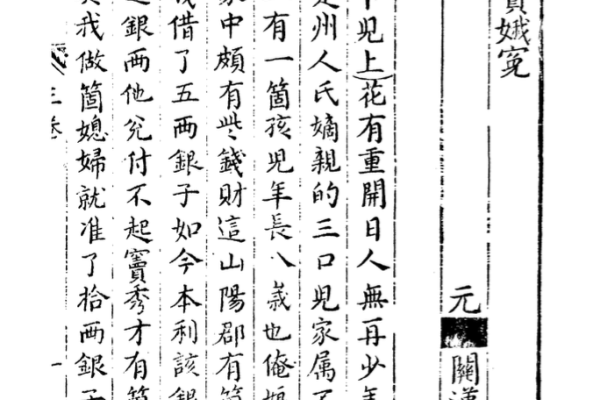 娥寃
元 關漢
卜兒上花有重開日人無再少年
州人氏嫡親的三口兒家属
有一箇孩兒年長八歲也俺娘
家中頗有些錢財這山陽郡有箇
我借了五两銀子如今本利該銀
銀两他兌付不起竇秀才有箇
我做箇媳婦就准了拾两銀子